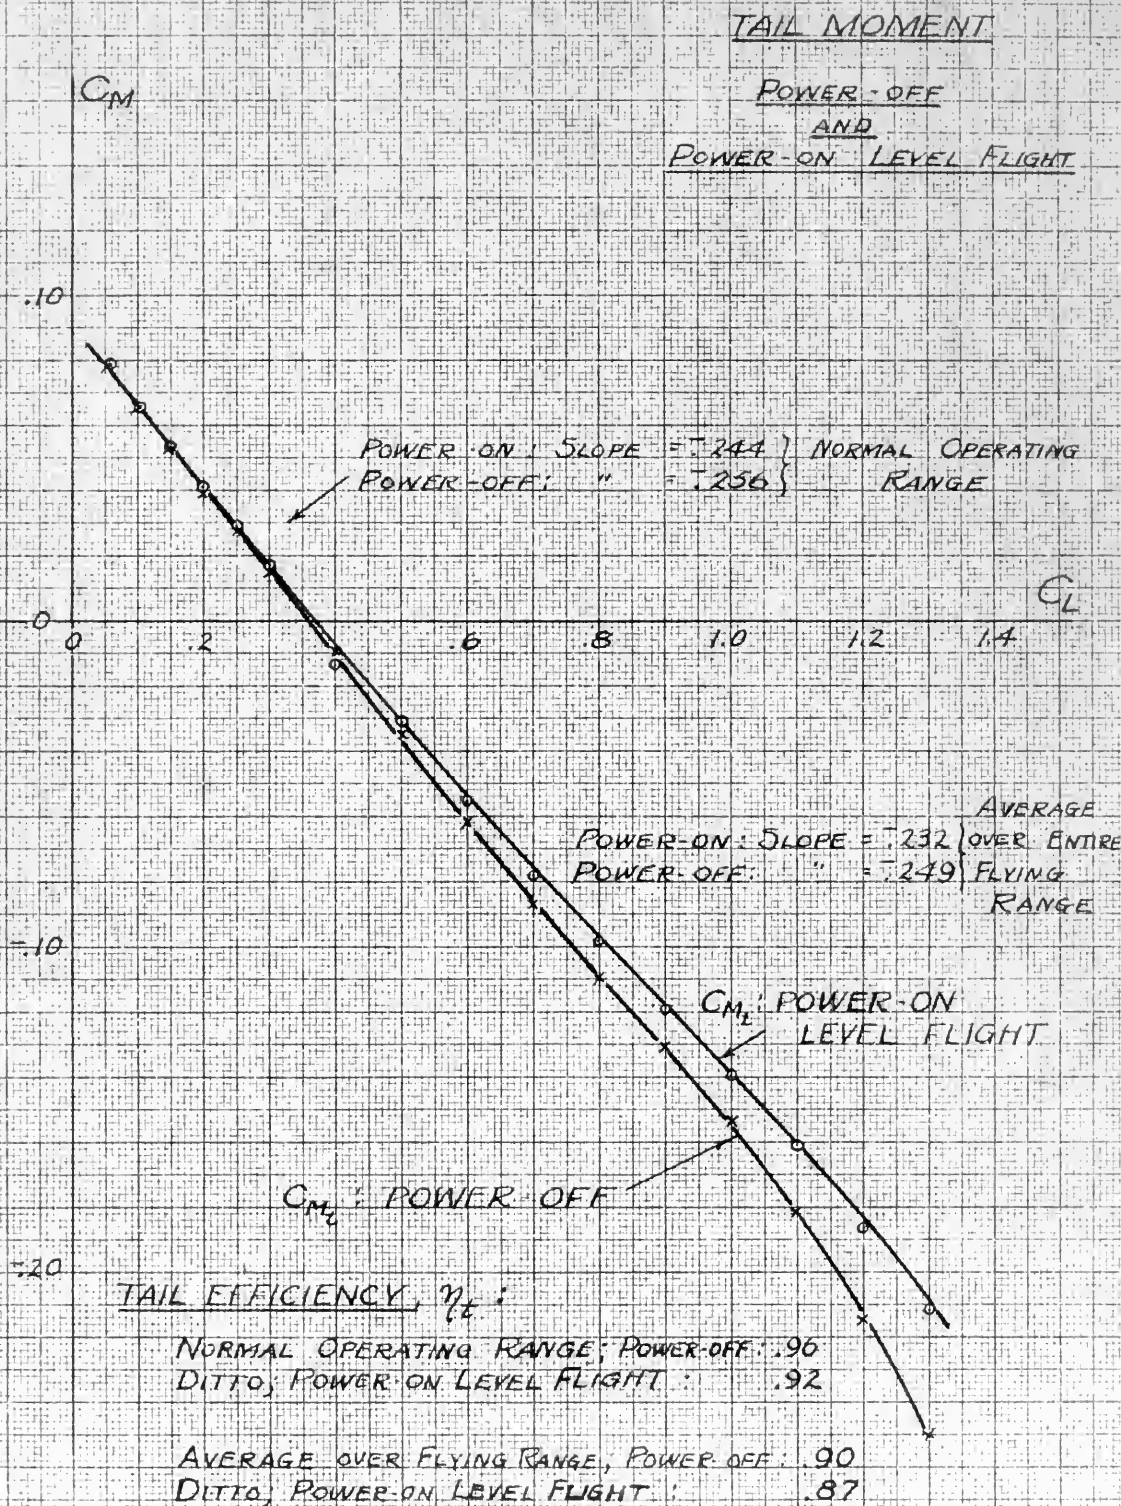 TAIL MOMENT
POWER-OFF
AND
POWER-ON LEVEL FLIGHT
CM
.10
POWER-ON: SLOPE = -.244 } NORMAL OPERATING
POWER-OFF: " = -.256 } RANGE
CL
0
0 .2 .6 .8 1.0 1.2 1.4
AVERAGE
POWER-ON: SLOPE = -.232 } OVER ENTIRE
POWER-OFF: " = -.249 } FLYING
RANGE
-.10
CMt: POWER-ON
LEVEL FLIGHT
CMt: POWER-OFF
-.20
TAIL EFFICIENCY, ηt:
NORMAL OPERATING RANGE; POWER-OFF: .96
DITTO; POWER-ON LEVEL FLIGHT: .92
AVERAGE OVER FLYING RANGE, POWER OFF: .90
DITTO; POWER-ON LEVEL FLIGHT: .87